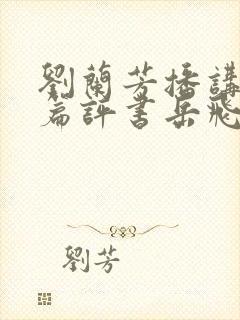 劉蘭芳播講
篇評書岳飛
劉芳